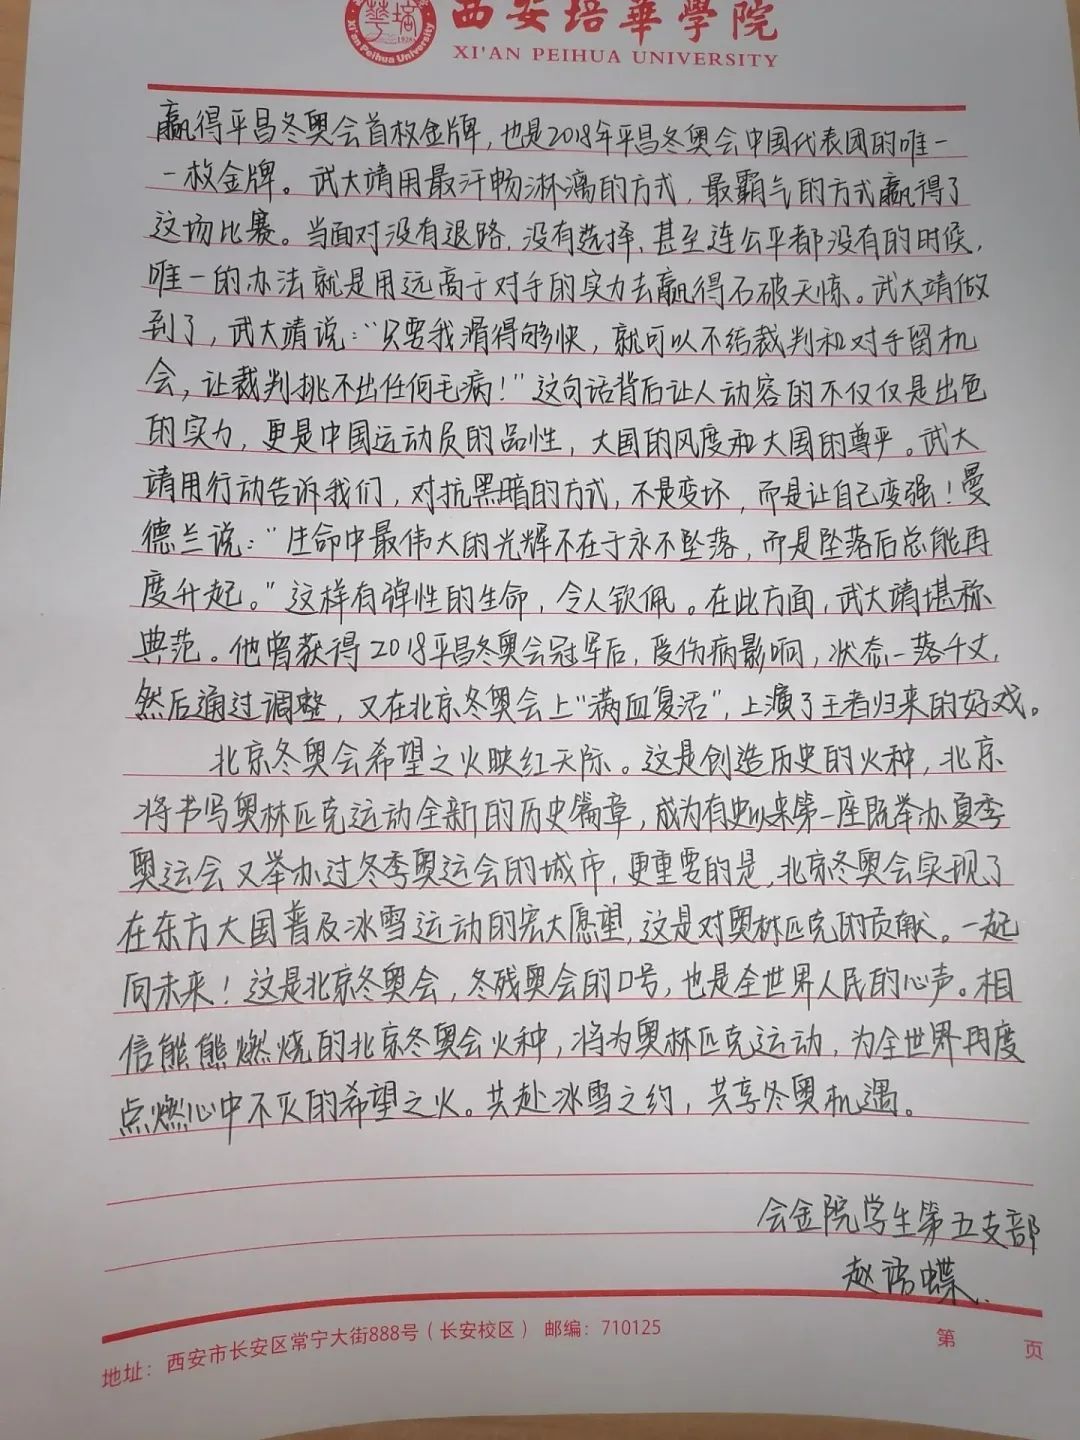 西安培華學院
Xi'an Peihua University
XI'AN PEIHUA UNIVERSITY
赢得平昌冬奥会首枚金牌，也是2018年平昌冬奥会中国代表团的唯一
一枚金牌。武大靖用最汗畅淋漓的方式，最霸气的方式赢得了
这场比赛。当面对没有退路，没有选择，甚至连公平都没有的时候，
唯一的办法就是用远高于对手的实力去赢得石破天惊。武大靖做
到了，武大靖说：“只要我滑得够快，就可以不给裁判和对手留机
会，让裁判挑不出任何毛病！”这句话背后让人动容的不仅仅是出色
的实力，更是中国运动员的品性，大国的风度和大国的尊严。武大
靖用行动告诉我们，对抗黑暗的方式，不是变坏，而是让自己变强！曼
德兰说：“生命中最伟大的光辉不在于永不坠落，而是坠落后总能再
度升起。”这样有弹性的生命，令人钦佩。在此方面，武大靖堪称
典范。他曾获得2018平昌冬奥会冠军后，受伤病影响，状态一落千丈，
然后通过调整，又在北京冬奥会上“满血复活”，上演了王者归来的好戏。
北京冬奥会希望之火映红天际。这是创造历史的火种，北京
将书写奥林匹克运动全新的历史篇章，成为有史以来第一座既举办夏季
奥运会又举办过冬季奥运会的城市，更重要的是，北京冬奥会实现了
在东方大国普及冰雪运动的宏大愿望，这是对奥林匹克的贡献。一起
向未来！这是北京冬奥会，冬残奥会的口号，也是全世界人民的心声。相
信熊熊燃烧的北京冬奥会火种，将为奥林匹克运动，为全世界再度
点燃心中不灭的希望之火。共赴冰雪之约，共享冬奥机遇。
会金院学生第五支部
赵 蝶
地址：西安市长安区常宁大街888号（长安校区） 邮编：710125
第 页